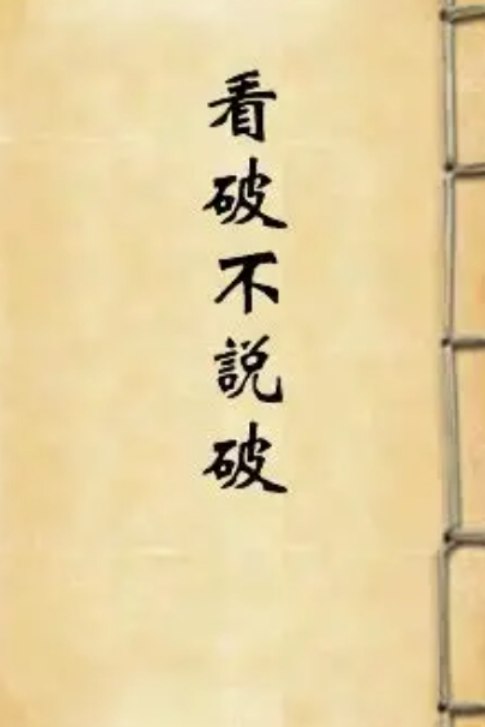 看破不說破